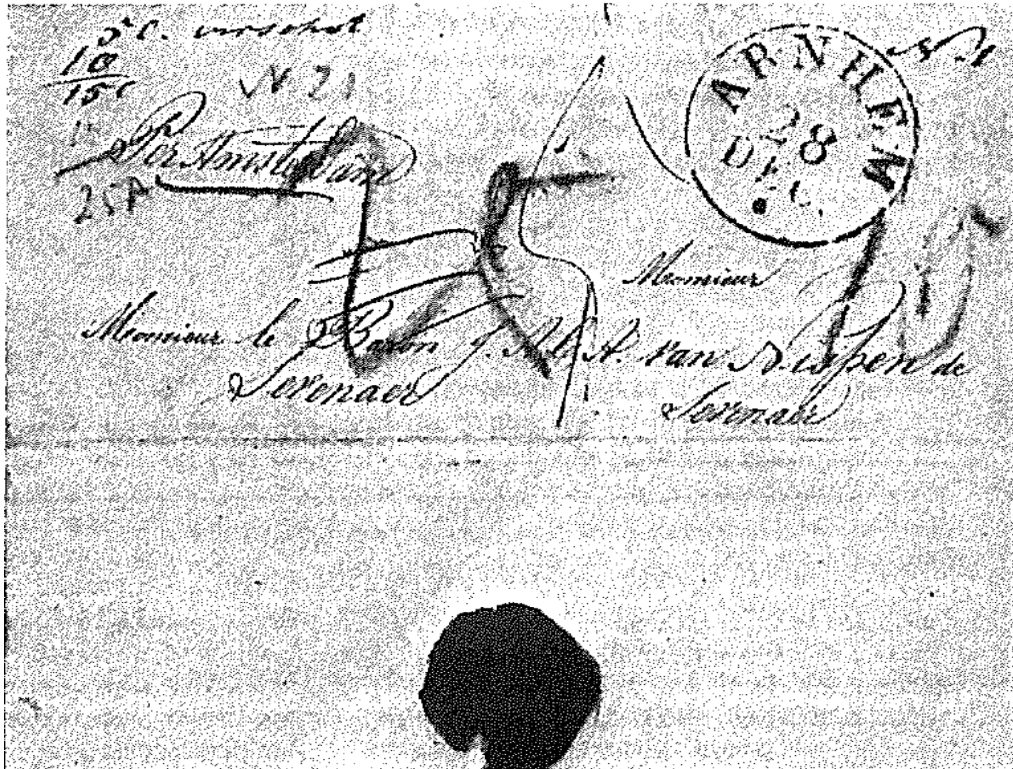 5 C. verschot
10
15 c
N 21
Per Amsterdam
25
ARNHEM
28
DEC.
Monsieur
Monsieur le Baron J. A. van Nispen de
Sevenaer
Sevenaer